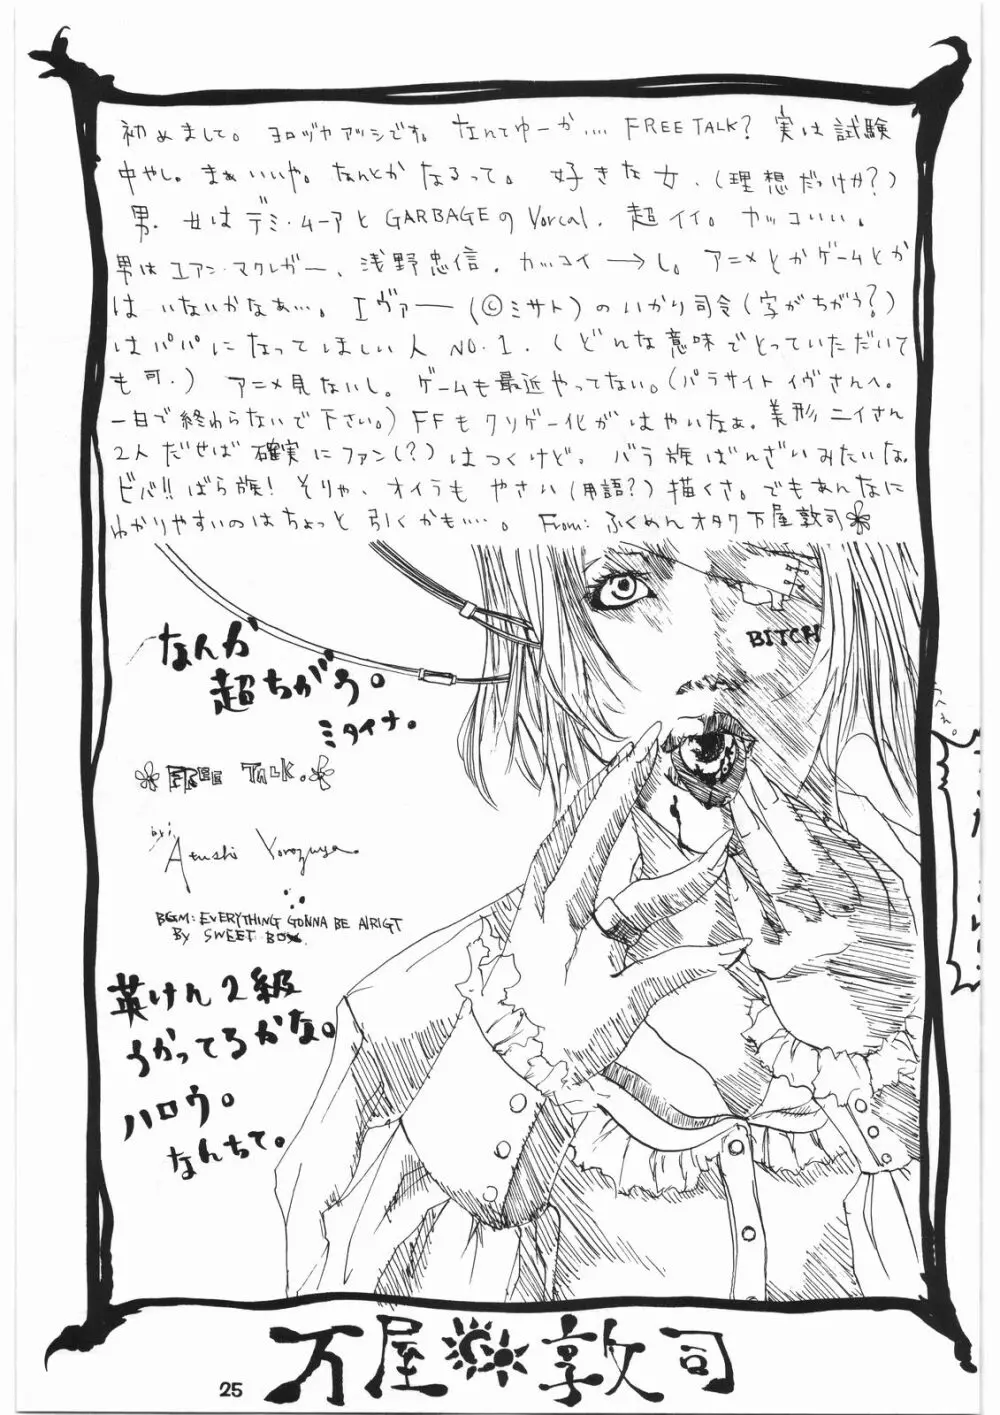 初めまして。ヨロヅヤアツシです。なんてゆーか.... FREE TALK? 実は試験
中やし。まぁいいや。なんとかなるって。好きな女.(理想だっけか?)
男. 女はデミ・ムーアとGARBAGEのVorcal. 超イイ。カッコいい。
男はユアン・マクレガー、浅野忠信. カッコイーっし。アニメとかゲームとか
はいないかなぁ…。エヴァー(©ミサト)のいかり司令(字がちがう?)
はパパになってほしい人NO.1.(どんな意味でとっていただいて
も可.) アニメ見ないし。ゲームも最近やってない。(パラサイトイヴさんへ。
一日で終わらないで下さい。) FFもクソゲー化がはやいなぁ。美形ニイさん
2人だせば確実にファン(?)はつくけど。バラ族ばんざいみたいな。
ビバ!!ばら族! そりゃ、オイラもやさい(用語?)描くさ。でもあんなに
わかりやすいのはちょっと引くかも….。From: ふくめんオタク万屋敦司
BITCH
なんか
超ちがう。
ミタイナ。
FREE TALK.
Atushi Yorozuya.
BGM: EVERYTHING GONNA BE ALRIGT
BY SWEET BOX.
英けん2級
うかってるかな。
ハロウ。
なんちて。
万屋敦司
25